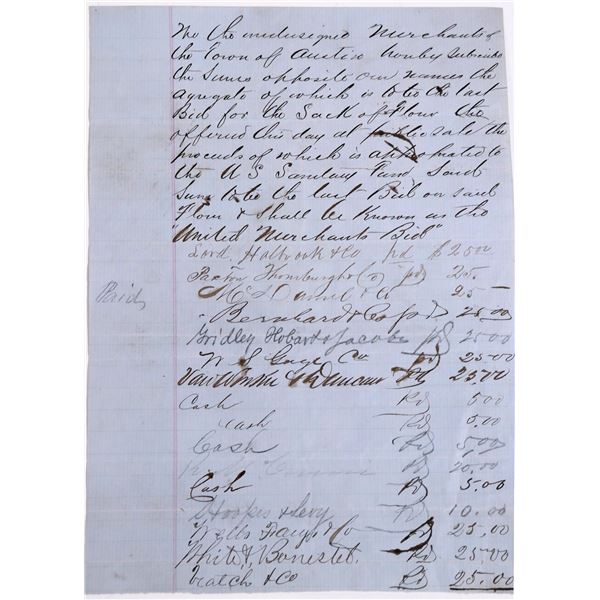 We the undersigned Merchants of
the Town of Austin hereby subscribe
the sums opposite our names the
agregate of which is to be the last
Bid for the Sack of Flour the
offered this day at public sale the
proceeds of which is appropriated to
the U S Sanitary Fund Said
Sum to be the last Bid on said
Flour & shall be Known as the
"United Merchants Bid"
Lord, Holbrook & Co pd $25.00
Paxton Thornburgh Co pd 25
Paid
McDaniel & Co 25
Bernhard & Co pd 25.00
Gridley Hobart & Jacobs pd 25.00
W S Gage Co pd 25.00
Duncan Pd 25.00
Cash Pd 5.00
Cash Pd 5.00
Cash Pd 5.00
Pd 20.00
Cash Pd 5.00
Hooper & Levy Pd 10.00
Wells Fargo & Co Pd 25.00
White & Bonestel Pd 25.00
& Co Pd 25.00